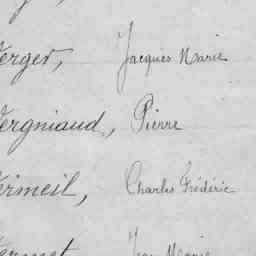 Verger, Jacques Marie
Vergniaud, Pierre
Vermeil, Charles Frédéric
Vermet Jean Marie